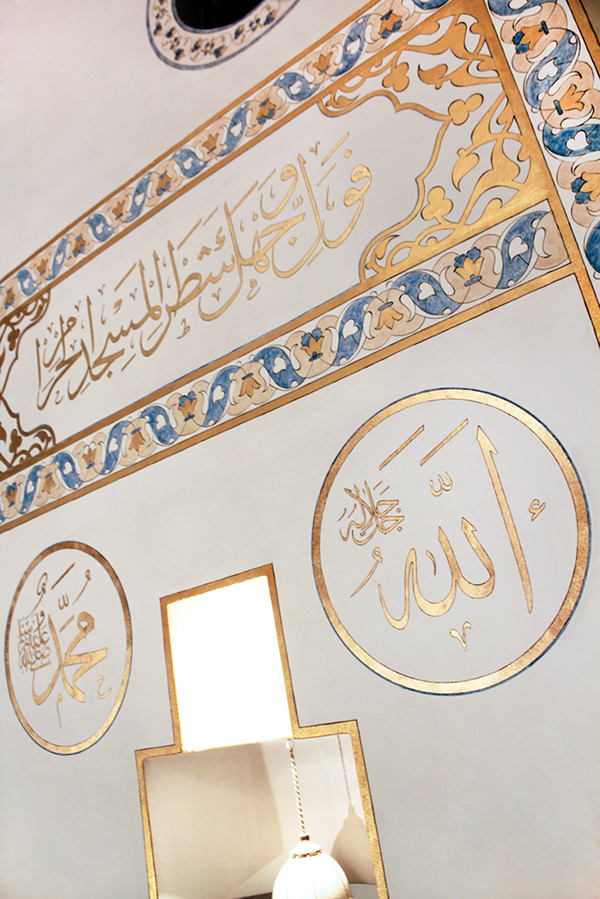 فَوَلِّ وَجْهَكَ شَطْرَ الْمَسْجِدِ الْحَرَامِ
اللّٰه جل جلاله
محمد صلى الله عليه وسلم